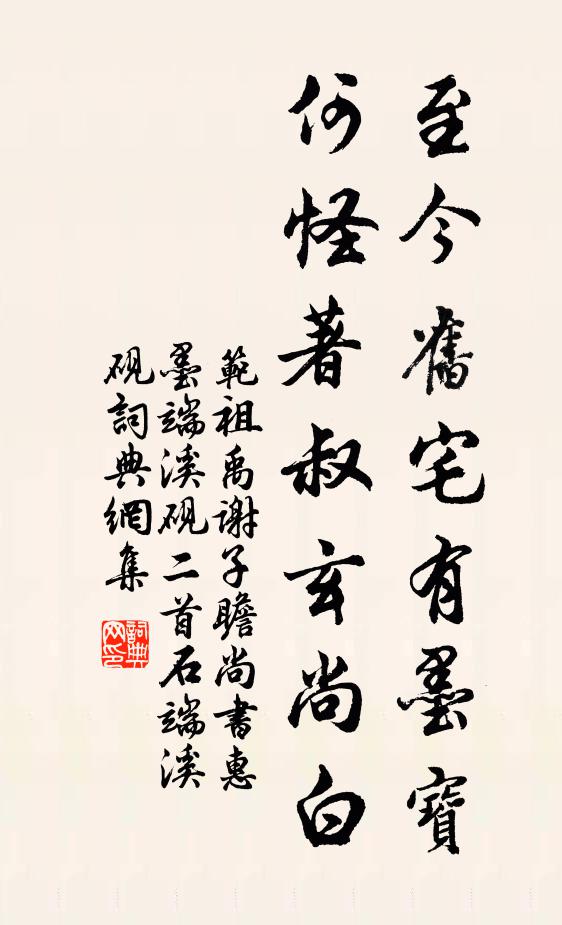 至今舊宅有墨寶
何怪著叔玄尚白
範祖禹謝子瞻尚書惠
墨端溪硯二首石端溪
硯詞典網集
詞典
网印